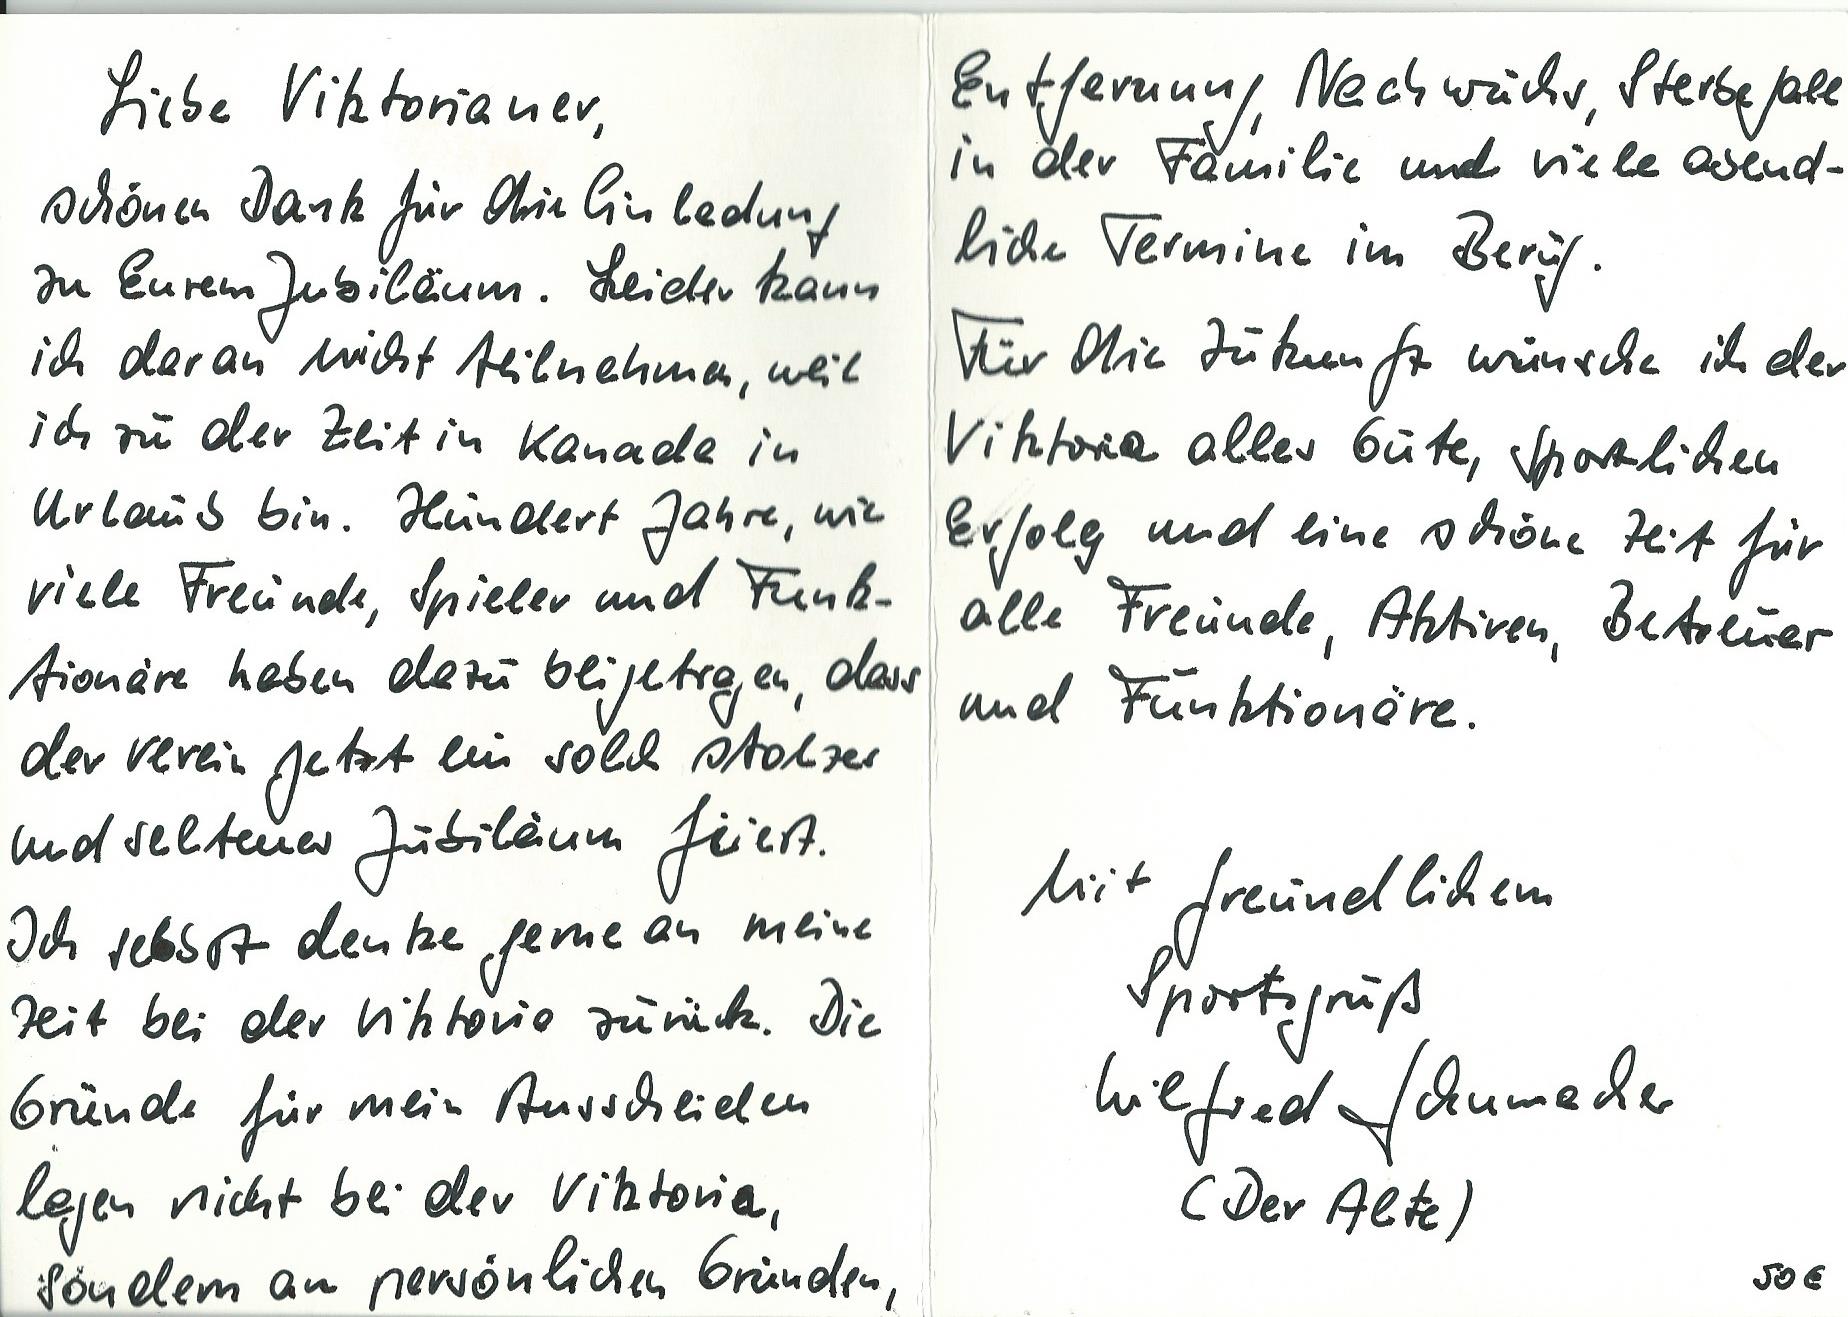 Liebe Viktorianer,
schönen Dank für die Einladung
zu Eurem Jubiläum. Leider kann
ich daran nicht teilnehmen, weil
ich zu der Zeit in Kanada in
Urlaub bin. Hundert Jahre, wie
viele Freunde, Spieler und Funk-
tionäre haben dazu beigetragen, dass
der Verein jetzt ein solch stolzes
und seltenes Jubiläum feiert.
Ich selbst denke gerne an meine
Zeit bei der Viktoria zurück. Die
Gründe für mein Ausscheiden
lagen nicht bei der Viktoria,
sondern an persönlichen Gründen,
Entfernung, Nachwuchs, Sterbefälle
in der Familie und viele abend-
liche Termine im Beruf.
Für die Zukunft wünsche ich der
Viktoria alles Gute, sportlichen
Erfolg und eine schöne Zeit für
alle Freunde, Aktiven, Betreuer
und Funktionäre.
Mit freundlichem
Sportsgruß
Wilfried Schumacher
(Der Alte)
50 €